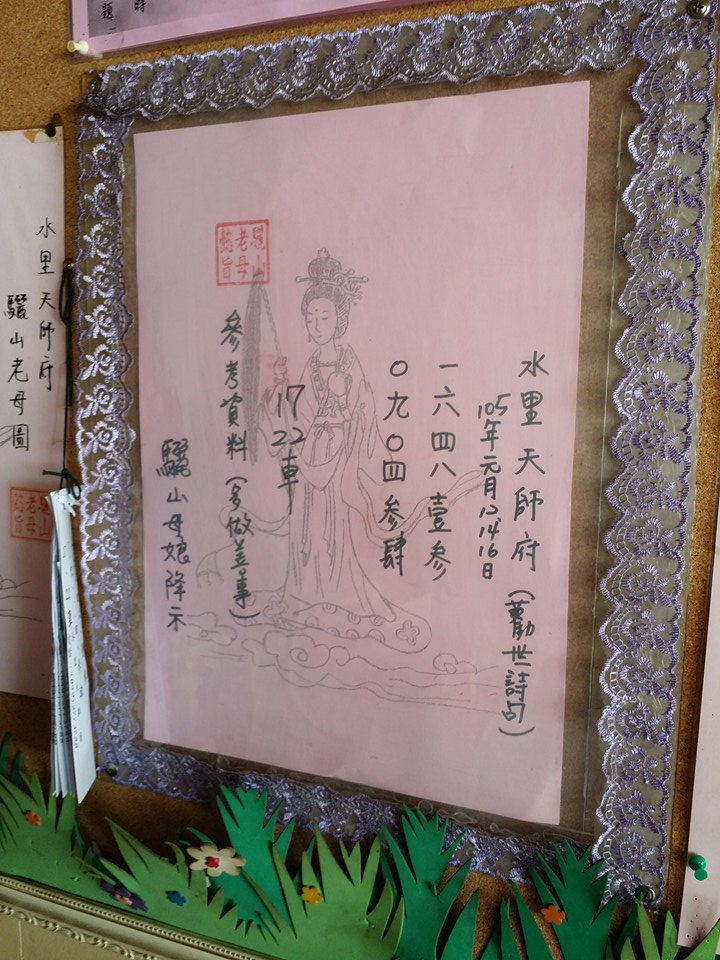 水里天師府（勸世詩句）
105年元月12、14、16日
一六四八壹參
〇九〇四參肆
17
22車
參考資料（多做善事）
驪山母娘降示
驪山
老母
懿旨
水里天師府
驪山老母圖
驪山
老母
懿旨
時
題